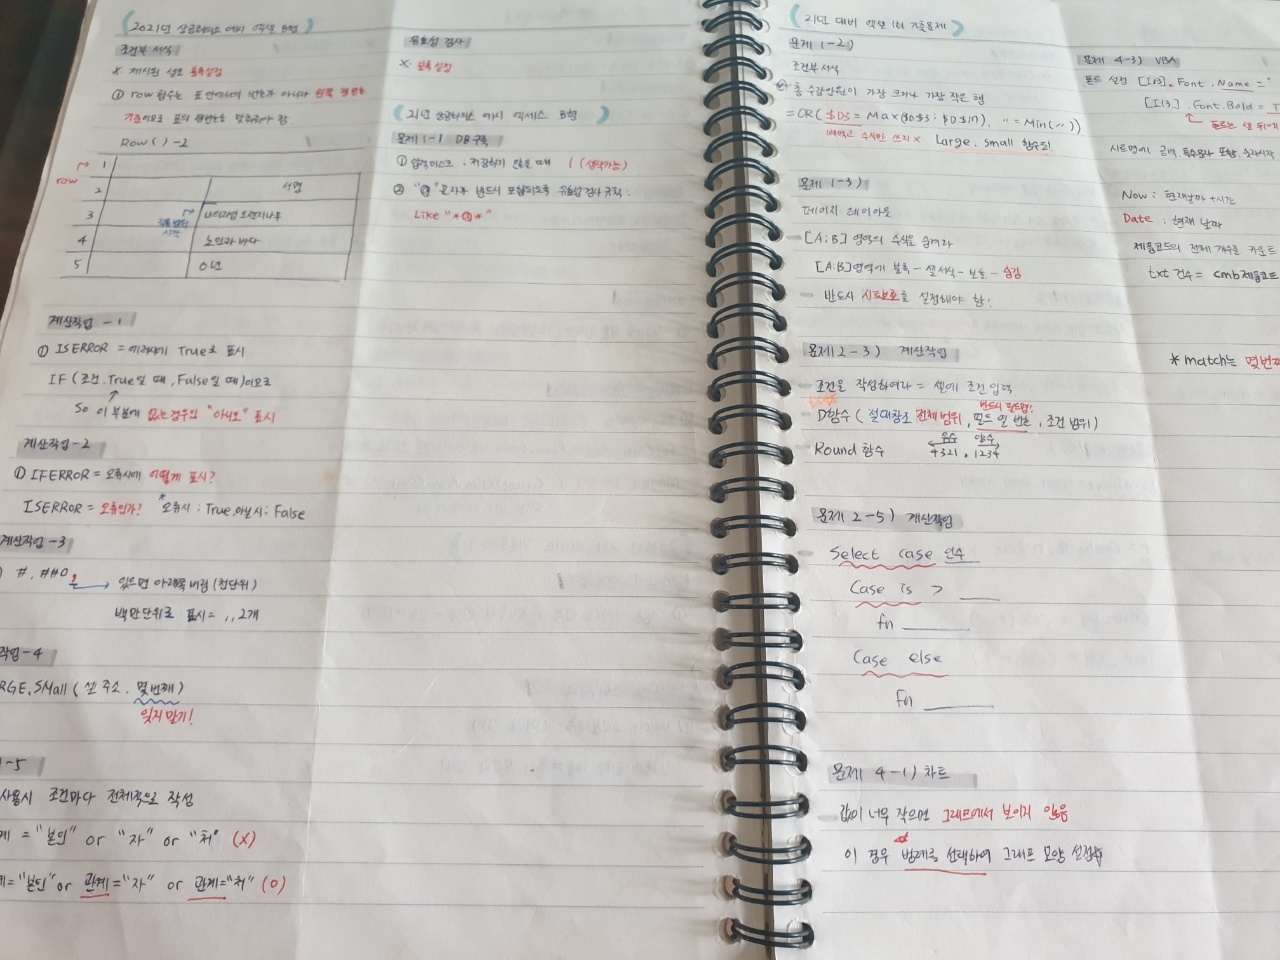 2021년 상공회의소 예시 엑셀 B형
조건부 서식
* 제시된 셀로 블록설정
① row 함수는 표 안에서의 번호가 아니라 왼쪽 행번호
기준이므로 표의 행번호를 맞춰줘야 함
Row()-2
row
1
2 서명
3
4 노인과 바다
5 소년
계산작업-1
① ISERROR = 에러시 True로 표시
IF(조건, True일 때, False일 때)이므로
So 이 부분에 없는 경우인 "아니오" 표시
계산작업-2
① IFERROR = 오류시에 어떻게 표시?
ISERROR = 오류인가? *오류시 : True, 아닐시 : False
계산작업-3
#,##0, 있으면 아래쪽 버림(천단위)
백만단위로 표시 = ,, 2개
작업-4
RGE, SMall (셀 주소, 몇번째)
잊지말기!
-5
사용시 조건마다 전체적으로 작성
계 = "본인" or "자" or "처" (X)
계="본인" or 관계="자" or 관계="처" (O)
유효성 검사
* 블록 설정
21년 상공회의소 예시 엑세스 B형
문제 1-1 DB구축
① 입력마스크 : 저장하지 않을 때 1 (생략가능)
② "@" 문자가 반드시 포함되도록 유효성 검사 규칙:
Like "*@*"
21년 대비 엑셀 1회 기출문제
문제 1-2)
조건부서식
총 수강인원이 가장 크거나 가장 작은 행
=OR($D3=Max($D$3:$D$17), "=Min(〃))
수식만 쓰지 X Large, small 함수도!
문제 1-3)
페이지 레이아웃
[A:B] 영역의 수식을 숨겨라
[A:B]영역에 블록 - 셀서식 - 보호 - 숨김
반드시 시트보호를 설정해야 함!
문제 2-3) 계산작업
조건을 작성하여라 = 셀에 조건 입력
D함수(절대참조 전체범위, 필드 열 번호, 조건 범위)
Round 함수 음수 양수
4321.1234
문제 2-5) 계산작업
Select case 인수
Case is > ____
fn ____
Case else
fn ____
문제 4-1) 차트
값이 너무 작으면 그래프에서 보이지 않음
이 경우 범례를 선택하여 그래프 모양 설정
문제 4-3) VBA
폰트 설정 [I13].Font.Name="
[I13].Font.Bold = T
폰트는 셀 뒤에
Now : 현재날짜+시간
Date : 현재 날짜
제품코드의 전체 개수를 카운트
txt건수 = cmb제품코드
*match는 몇번째